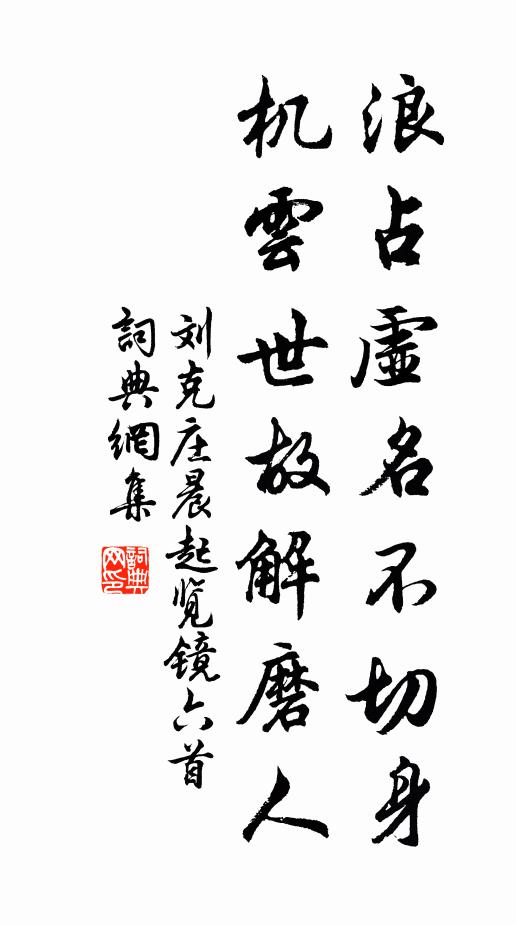 浪占虛名不切身
机雲世故解磨人
刘克庄晨起览镜六首
詞典網集
詞典網印